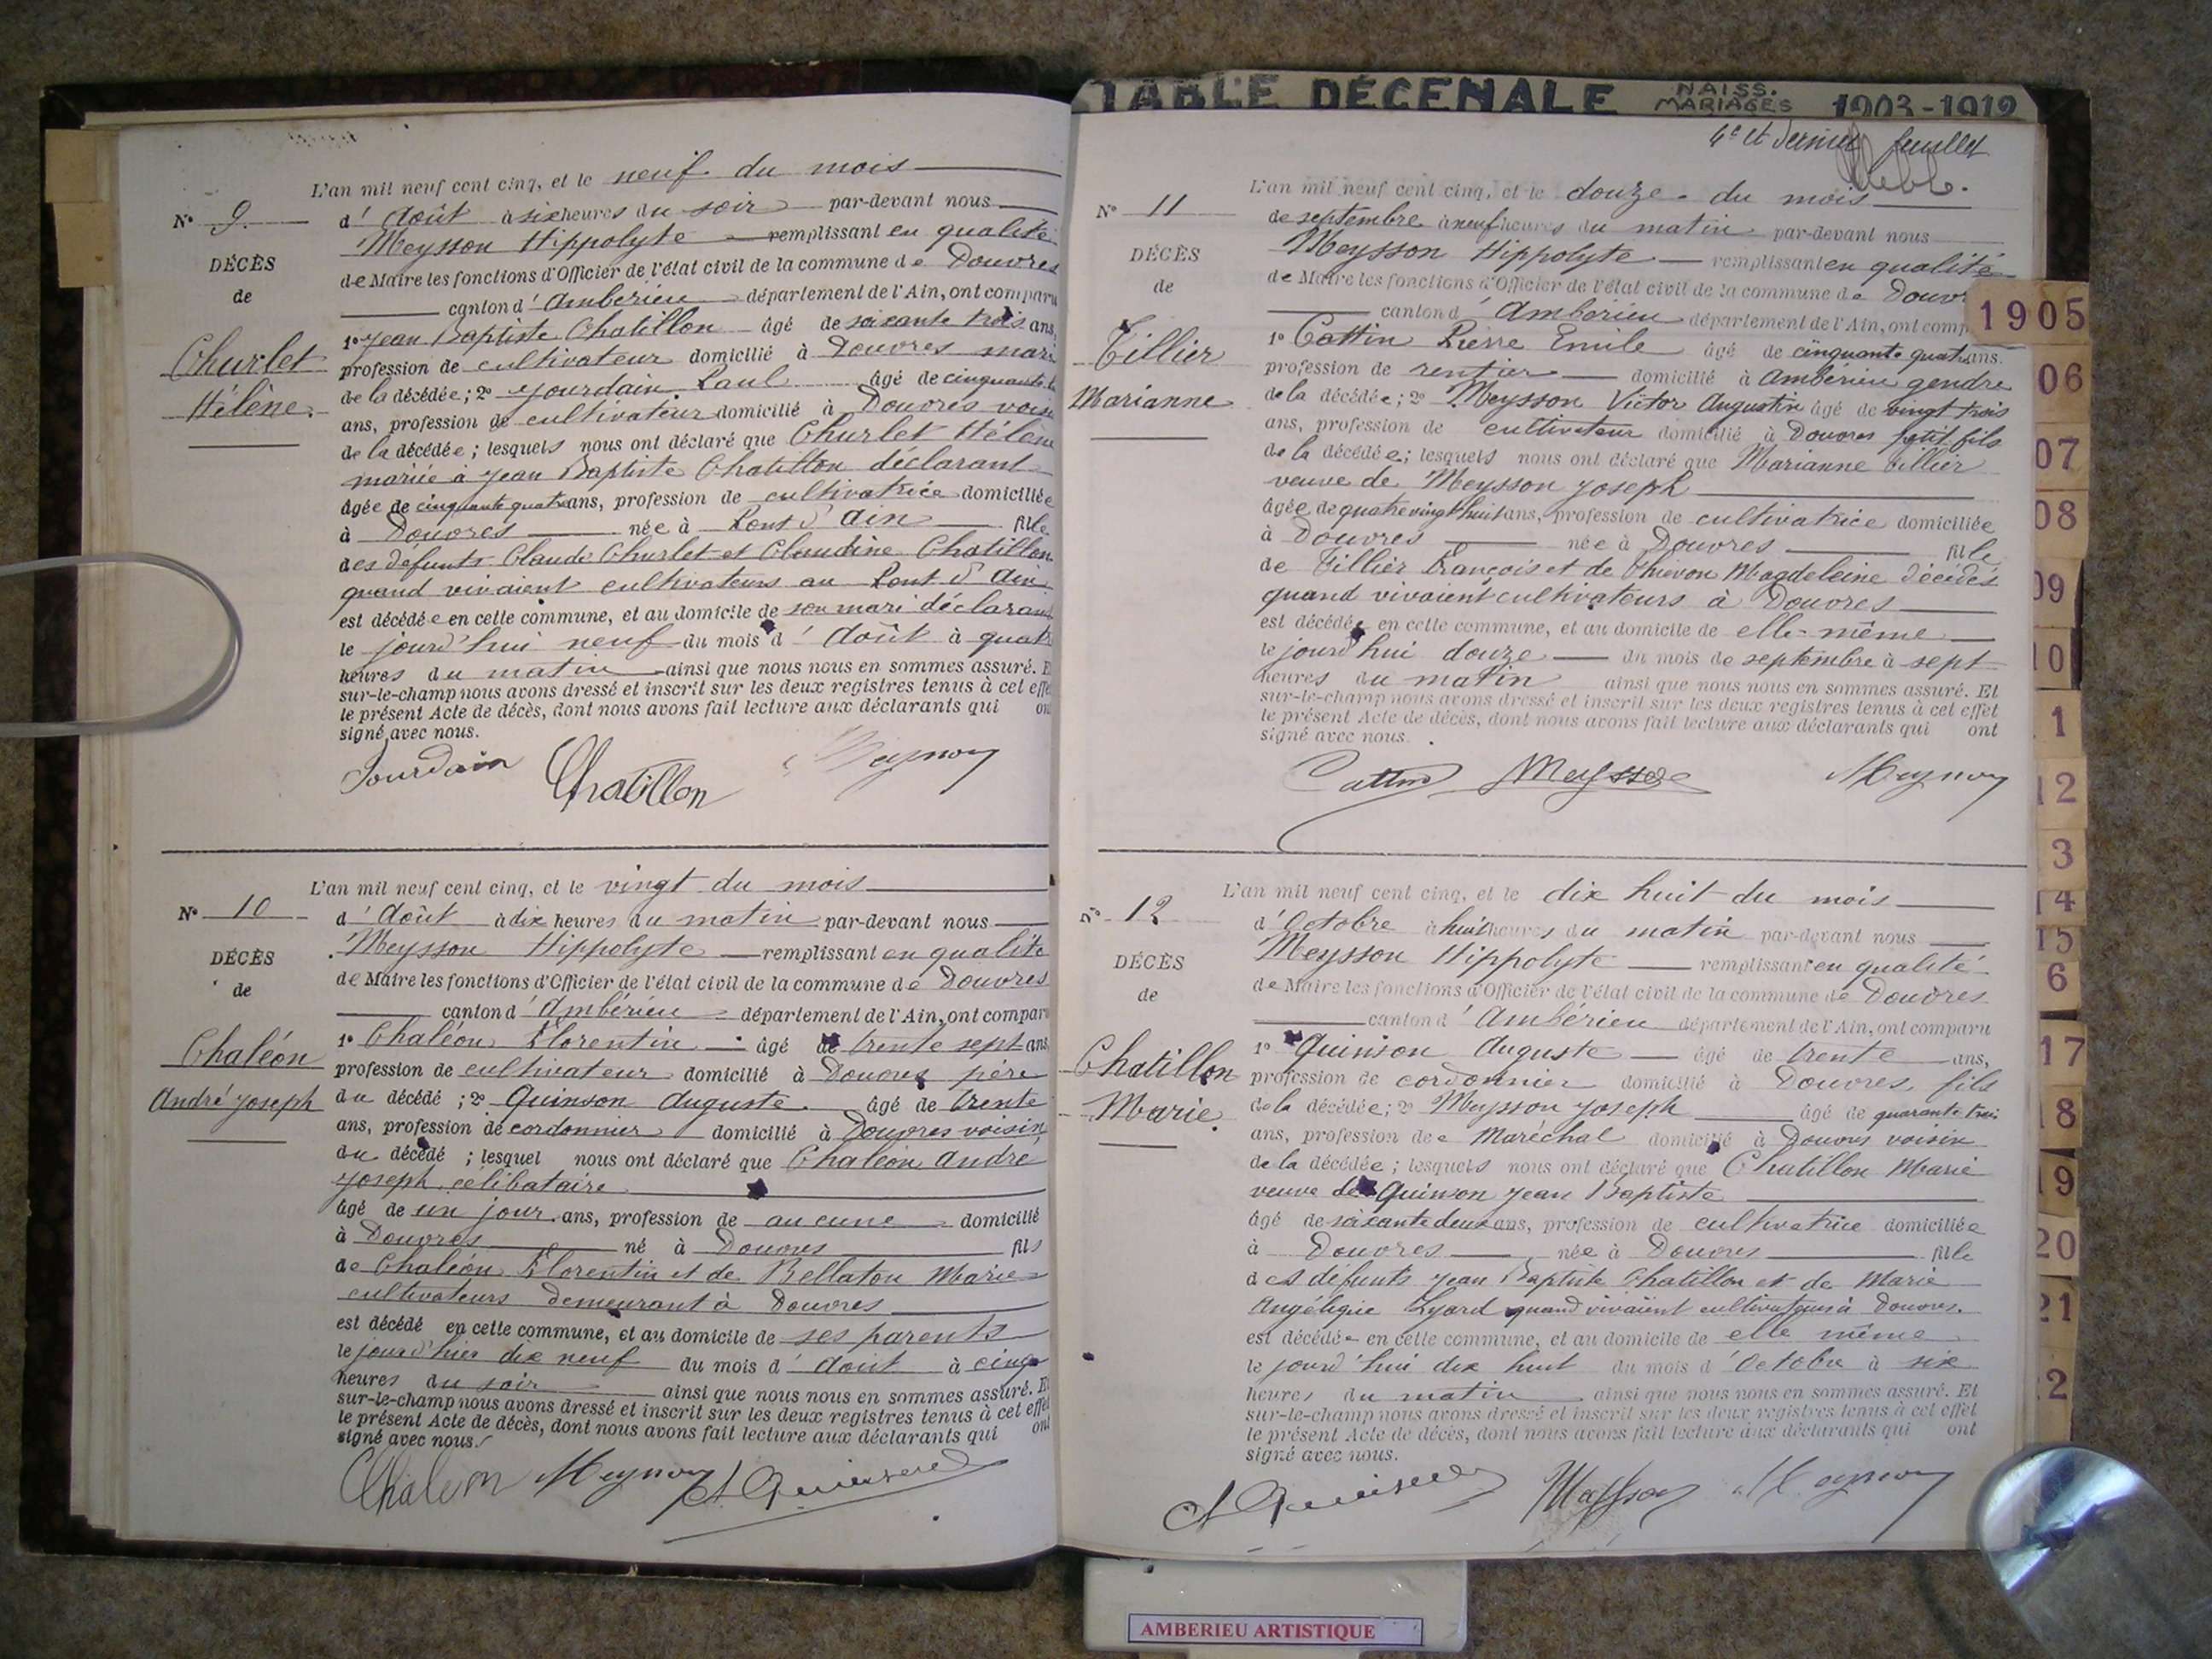 TABLE DÉCENALE NAISS. MARIAGES 1903-1912
N° 9
DÉCÈS
de
Churlet
Hélène.
L'an mil neuf cent cinq, et le neuf du mois
d'Août à six heures du soir par-devant nous
Meysson Hippolyte remplissant en qualité
de Maire les fonctions d'Officier de l'état civil de la commune de Douvres
canton d'Ambérieu département de l'Ain, ont comparu
1° Jean Baptiste Chatillon âgé de soixante trois ans,
profession de cultivateur domicilié à Douvres mari
de la décédée; 2° Jourdain Paul âgé de cinquante
ans, profession de cultivateur domicilié à Douvres voisin
de la décédée; lesquels nous ont déclaré que Churlet Hélène
mariée à Jean Baptiste Chatillon déclarant
âgée de cinquante quatre ans, profession de cultivatrice domiciliée
à Douvres née à Pont d'Ain fille
des défunts Claude Churlet et Claudine Chatillon
quand vivaient cultivateurs au Pont d'Ain
est décédée en cette commune, et au domicile de son mari déclarant
le jourd'hui neuf du mois d'Août à quatre
heures du matin ainsi que nous nous en sommes assuré. Et
sur-le-champ nous avons dressé et inscrit sur les deux registres tenus à cet effet
le présent Acte de décès, dont nous avons fait lecture aux déclarants qui ont
signé avec nous.
Jourdain Chatillon Meysson
N° 10
DÉCÈS
de
Chaléon
André Joseph
L'an mil neuf cent cinq, et le vingt du mois
d'Août à dix heures du matin par-devant nous
Meysson Hippolyte remplissant en qualité
de Maire les fonctions d'Officier de l'état civil de la commune de Douvres
canton d'Ambérieu département de l'Ain, ont comparu
1° Chaléon Florentin âgé de trente sept ans,
profession de cultivateur domicilié à Douvres père
du décédé; 2° Quinson Auguste âgé de trente
ans, profession de cordonnier domicilié à Douvres voisin
du décédé; lesquel nous ont déclaré que Chaléon André
Joseph célibataire
âgé de un jour ans, profession de aucune domicilié
à Douvres né à Douvres fils
de Chaléon Florentin et de Bellaton Marie
cultivateurs demeurant à Douvres
est décédé en cette commune, et au domicile de ses parents
le jourd'hier dix neuf du mois d'Août à cinq
heures du soir ainsi que nous nous en sommes assuré. Et
sur-le-champ nous avons dressé et inscrit sur les deux registres tenus à cet effet
le présent Acte de décès, dont nous avons fait lecture aux déclarants qui ont
signé avec nous.
Chaleon Meysson A Quinson
4e et dernier feuillet
N° 11
DÉCÈS
de
Tillier
Marianne
L'an mil neuf cent cinq, et le douze du mois
de septembre à neuf heures du matin par-devant nous
Meysson Hippolyte remplissant en qualité
de Maire les fonctions d'Officier de l'état civil de la commune de Douvr
canton d'Ambérieu département de l'Ain, ont comp
1° Cattin Pierre Emile âgé de cinquante quatre ans.
profession de rentier domicilié à Ambérieu gendre
de la décédée; 2° Meysson Victor Augustin âgé de vingt trois
ans, profession de cultivateur domicilié à Douvres petit fils
de la décédée; lesquels nous ont déclaré que Marianne Tillier
veuve de Meysson Joseph
âgée de quatre vingt huit ans, profession de cultivatrice domiciliée
à Douvres née à Douvres fille
de Tillier François et de Thévon Magdeleine décédés
quand vivaient cultivateurs à Douvres
est décédée en cette commune, et au domicile de elle-même
le jourd'hui douze du mois de septembre à sept
heures du matin ainsi que nous nous en sommes assuré. Et
sur-le-champ nous avons dressé et inscrit sur les deux registres tenus à cet effet
le présent Acte de décès, dont nous avons fait lecture aux déclarants qui ont
signé avec nous.
Cattin Meysson Meysson
N° 12
DÉCÈS
de
Chatillon
Marie.
L'an mil neuf cent cinq, et le dix huit du mois
d'Octobre à huit heures du matin par-devant nous
Meysson Hippolyte remplissant en qualité
de Maire les fonctions d'Officier de l'état civil de la commune de Douvres
canton d'Ambérieu département de l'Ain, ont comparu
1° Quinson Auguste âgé de trente ans,
profession de cordonnier domicilié à Douvres, fils
de la décédée; 2° Meysson Joseph âgé de quarante trois
ans, profession de Maréchal domicilié à Douvres voisin
de la décédée; lesquels nous ont déclaré que Chatillon Marie
veuve de Quinson Jean Baptiste
âgé de soixante deux ans, profession de cultivatrice domiciliée
à Douvres née à Douvres fille
des défunts Jean Baptiste Chatillon et de Marie
Angélique Lyard quand vivaient cultivateurs à Douvres.
est décédée en cette commune, et au domicile de elle même
le jourd'hui dix huit du mois d'Octobre à six
heures du matin ainsi que nous nous en sommes assuré. Et
sur-le-champ nous avons dressé et inscrit sur les deux registres tenus à cet effet
le présent Acte de décès, dont nous avons fait lecture aux déclarants qui ont
signé avec nous.
A Quinson Meysson Meysson
1905
06
07
08
09
10
1
12
3
14
15
6
17
18
19
20
21
2
AMBERIEU ARTISTIQUE